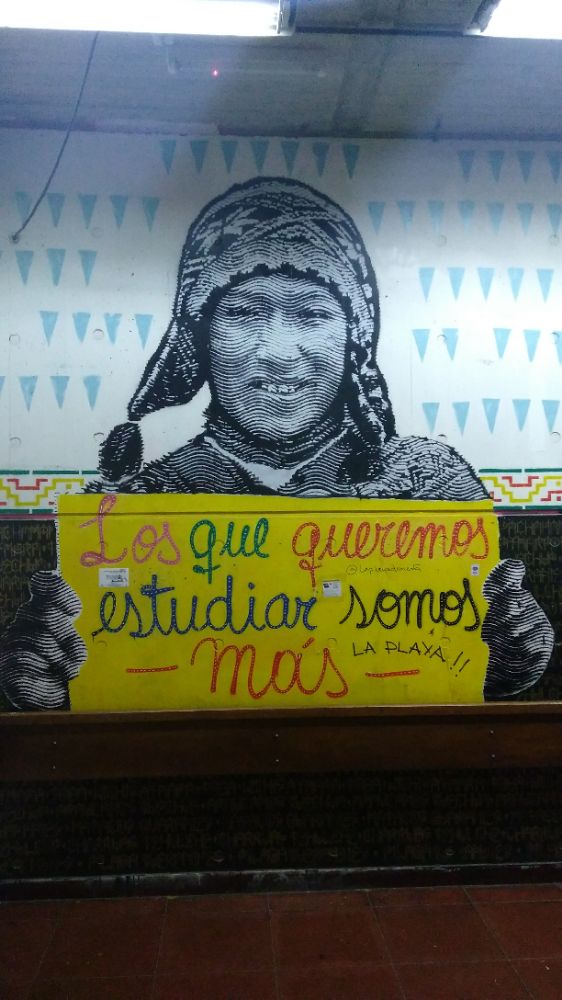 Los que queremos
estudiar somos
- más -
LA PLAYA!!